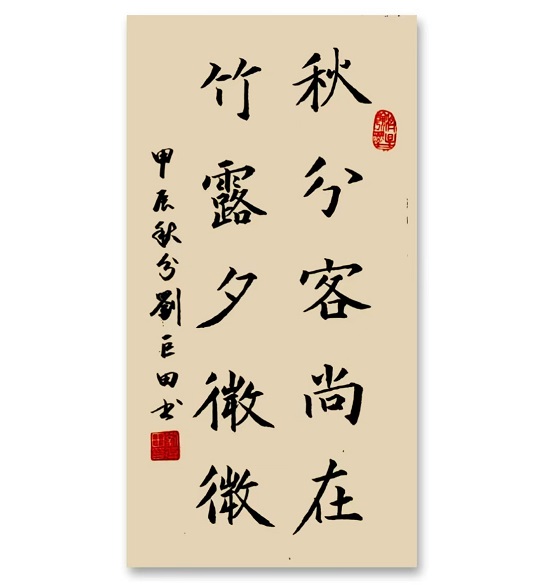 秋分客尚在
竹露夕微微
甲辰秋分劉巨田书